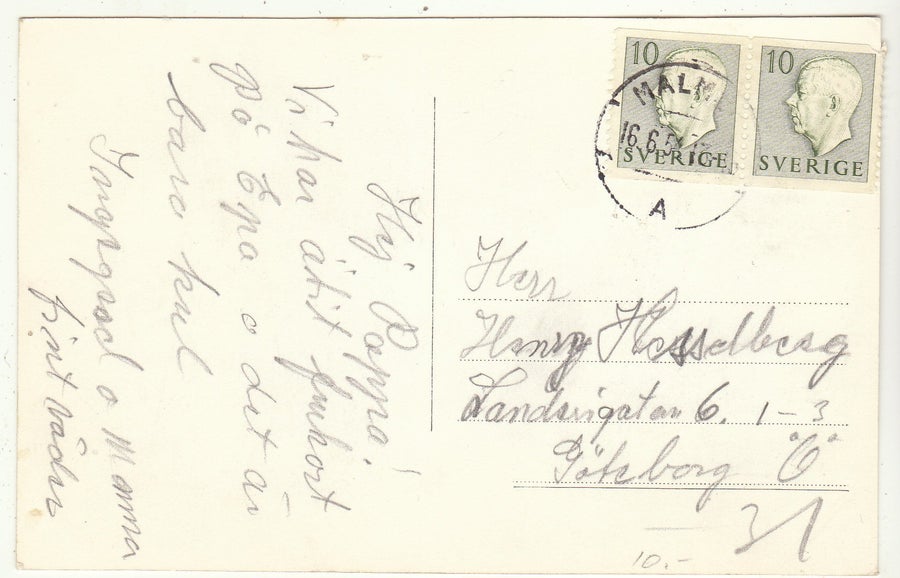 Hej Pappa!
Vi har ätit frukost
på Epa o det är
bara kul
Ingegerd o Mamma
fint väder
10 SVERIGE
10 SVERIGE
MALM
16.6.5
A
Herr
Henry Hesselberg
Landsvägatan 6. 1-3
Göteborg "Ö"
31
10.-